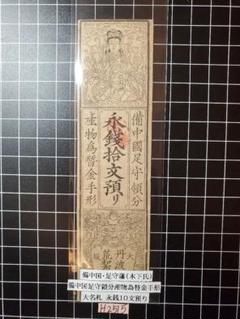 備中國足守領分
永錢拾文預り
産物為替金手形
大
丹波
備中国・足守藩(木下氏)
備中国足守領分産物為替金手形
大名札 永銭10文預り